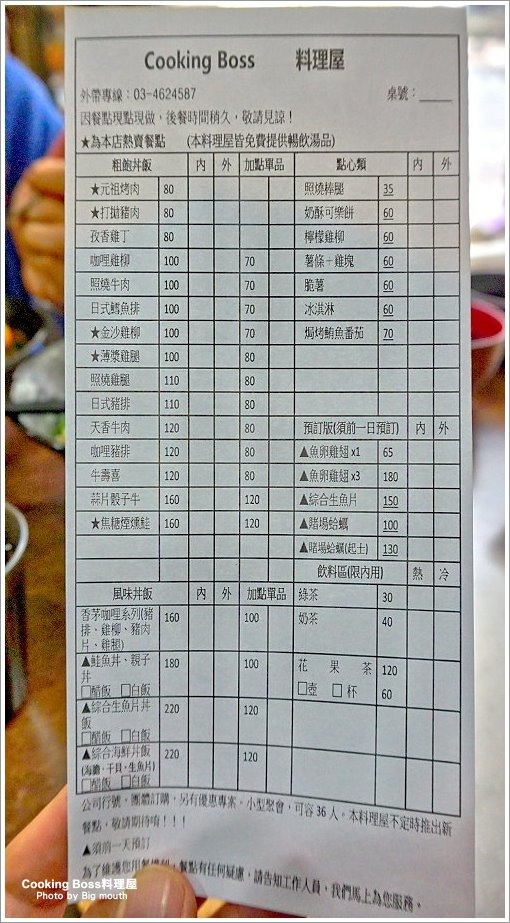 Cooking Boss 料理屋
外帶專線：03-4624587 桌號：_____
因餐點現點現做，後餐時間稍久，敬請見諒！
★為本店熱賣餐點 (本料理屋皆免費提供暢飲湯品)
粗飽丼飯 內 外 加點單品 點心類 內 外
★元祖烤肉 80 照燒棒腿 35
★打拋豬肉 80 奶酥可樂餅 60
孜香雞丁 80 檸檬雞柳 60
咖哩雞柳 100 70 薯條＋雞塊 60
照燒牛肉 100 70 脆薯 60
日式鱈魚排 100 70 冰淇淋 60
★金沙雞柳 100 70 焗烤鮪魚番茄 70
★薄漿雞腿 100 80
照燒雞腿 110 80
日式豬排 110 80
天香牛肉 120 80 預訂版(須前一日預訂) 內 外
咖哩豬排 120 80 ▲魚卵雞翅x1 65
牛壽喜 120 80 ▲魚卵雞翅x3 180
蒜片骰子牛 160 120 ▲綜合生魚片 150
★焦糖煙燻鮭 160 120 ▲賭場蛤蠣 100
▲賭場蛤蠣(起士) 130
飲料區(限內用) 熱 冷
風味丼飯 內 外 加點單品 綠茶 30
香茅咖哩系列(豬 160 100 奶茶 40
排、雞柳、豬肉
片、雞腿)
▲鮭魚丼、親子 180 100 花果茶 120
丼
□醋飯 □白飯 □壺 □杯 60
▲綜合生魚片丼 220 120
飯
□醋飯 □白飯
▲綜合海鮮丼飯 220 120
(海膽、干貝、生魚片)
□醋飯 □白飯
公司行號、團體訂購，另有優惠專案。小型聚會，可容36人。本料理屋不定時推出新
餐點，敬請期待唷！！！
▲須前一天預訂
為了維護您用餐權利，餐點有任何疑慮，請告知工作人員，我們馬上為您服務。
Cooking Boss料理屋
Photo by Big mouth